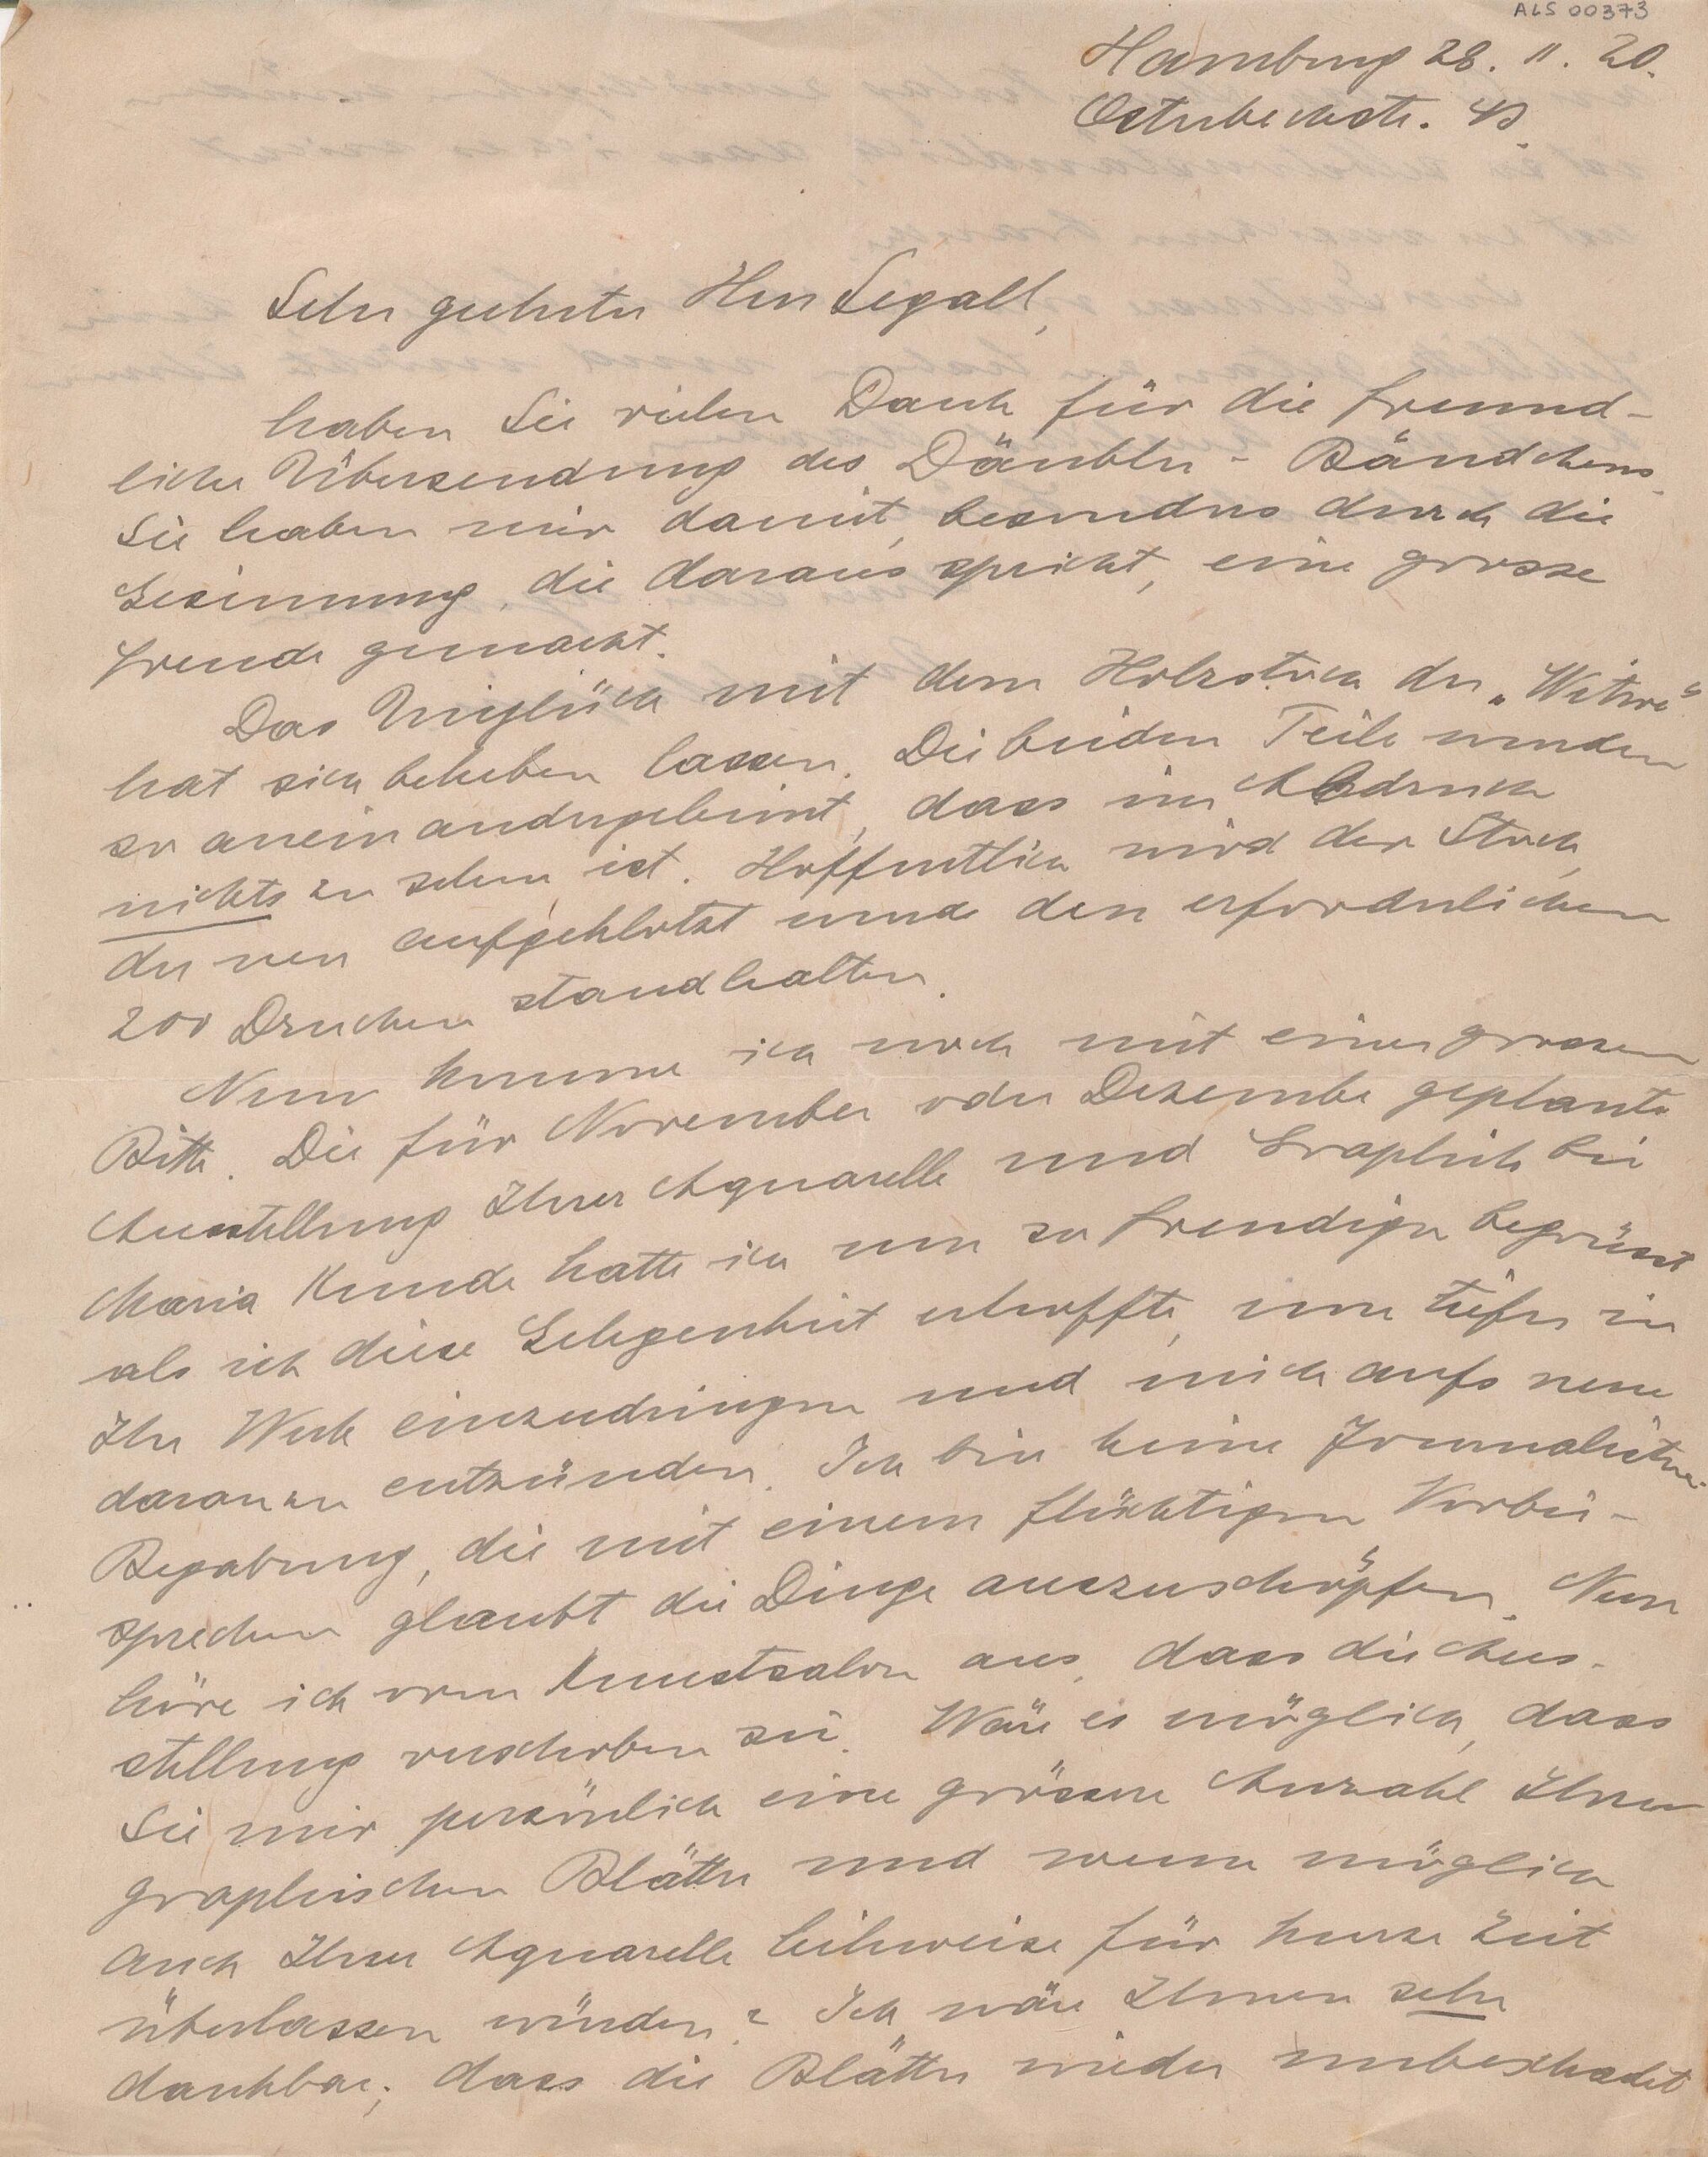 ALS 00373
Hamburg 28. 11. 20.
Osterbeckstr. 43
Sehr geehrter Herr Segall,
haben Sie vielen Dank für die freund-
liche Übersendung des Däubler-Bändchens.
Sie haben mir damit, besonders durch die
Gesinnung, die daraus spricht, eine grosse
Freude gemacht.
Das Unglück mit dem Holzstock der „Witwe“
hat sich beheben lassen. Die beiden Teile wurden
so aneinandergeleimt, dass im Abdruck
nichts zu sehen ist. Hoffentlich wird der Stock,
der neu aufgeklotzt wurde den erforderlichen
200 Drucken standhalten.
Nun komme ich noch mit einer grossen
Bitte. Die für November oder Dezember geplante
Ausstellung Ihrer Aquarelle und Graphik bei
Maria Kunde hatte ich um so freudiger begrüsst
als ich diese Gelegenheit erhoffte, um tiefer in
Ihr Werk einzudringen und mich aufs neue
daran zu entzünden. Ich bin keine Journalisten-
Begabung, die mit einem flüchtigen Vorbei-
sprechen glaubt die Dinge auszuschöpfen. Nun
höre ich vom Kunstsalon aus, dass die Aus-
stellung verschoben sei. Wäre es möglich, dass
Sie mir persönlich eine grössere Anzahl Ihrer
graphischen Blätter und wenn möglich
auch Ihrer Aquarelle leihweise für kurze Zeit
überlassen würden? Ich wäre Ihnen sehr
dankbar; dass die Blätter wieder unbeschadet